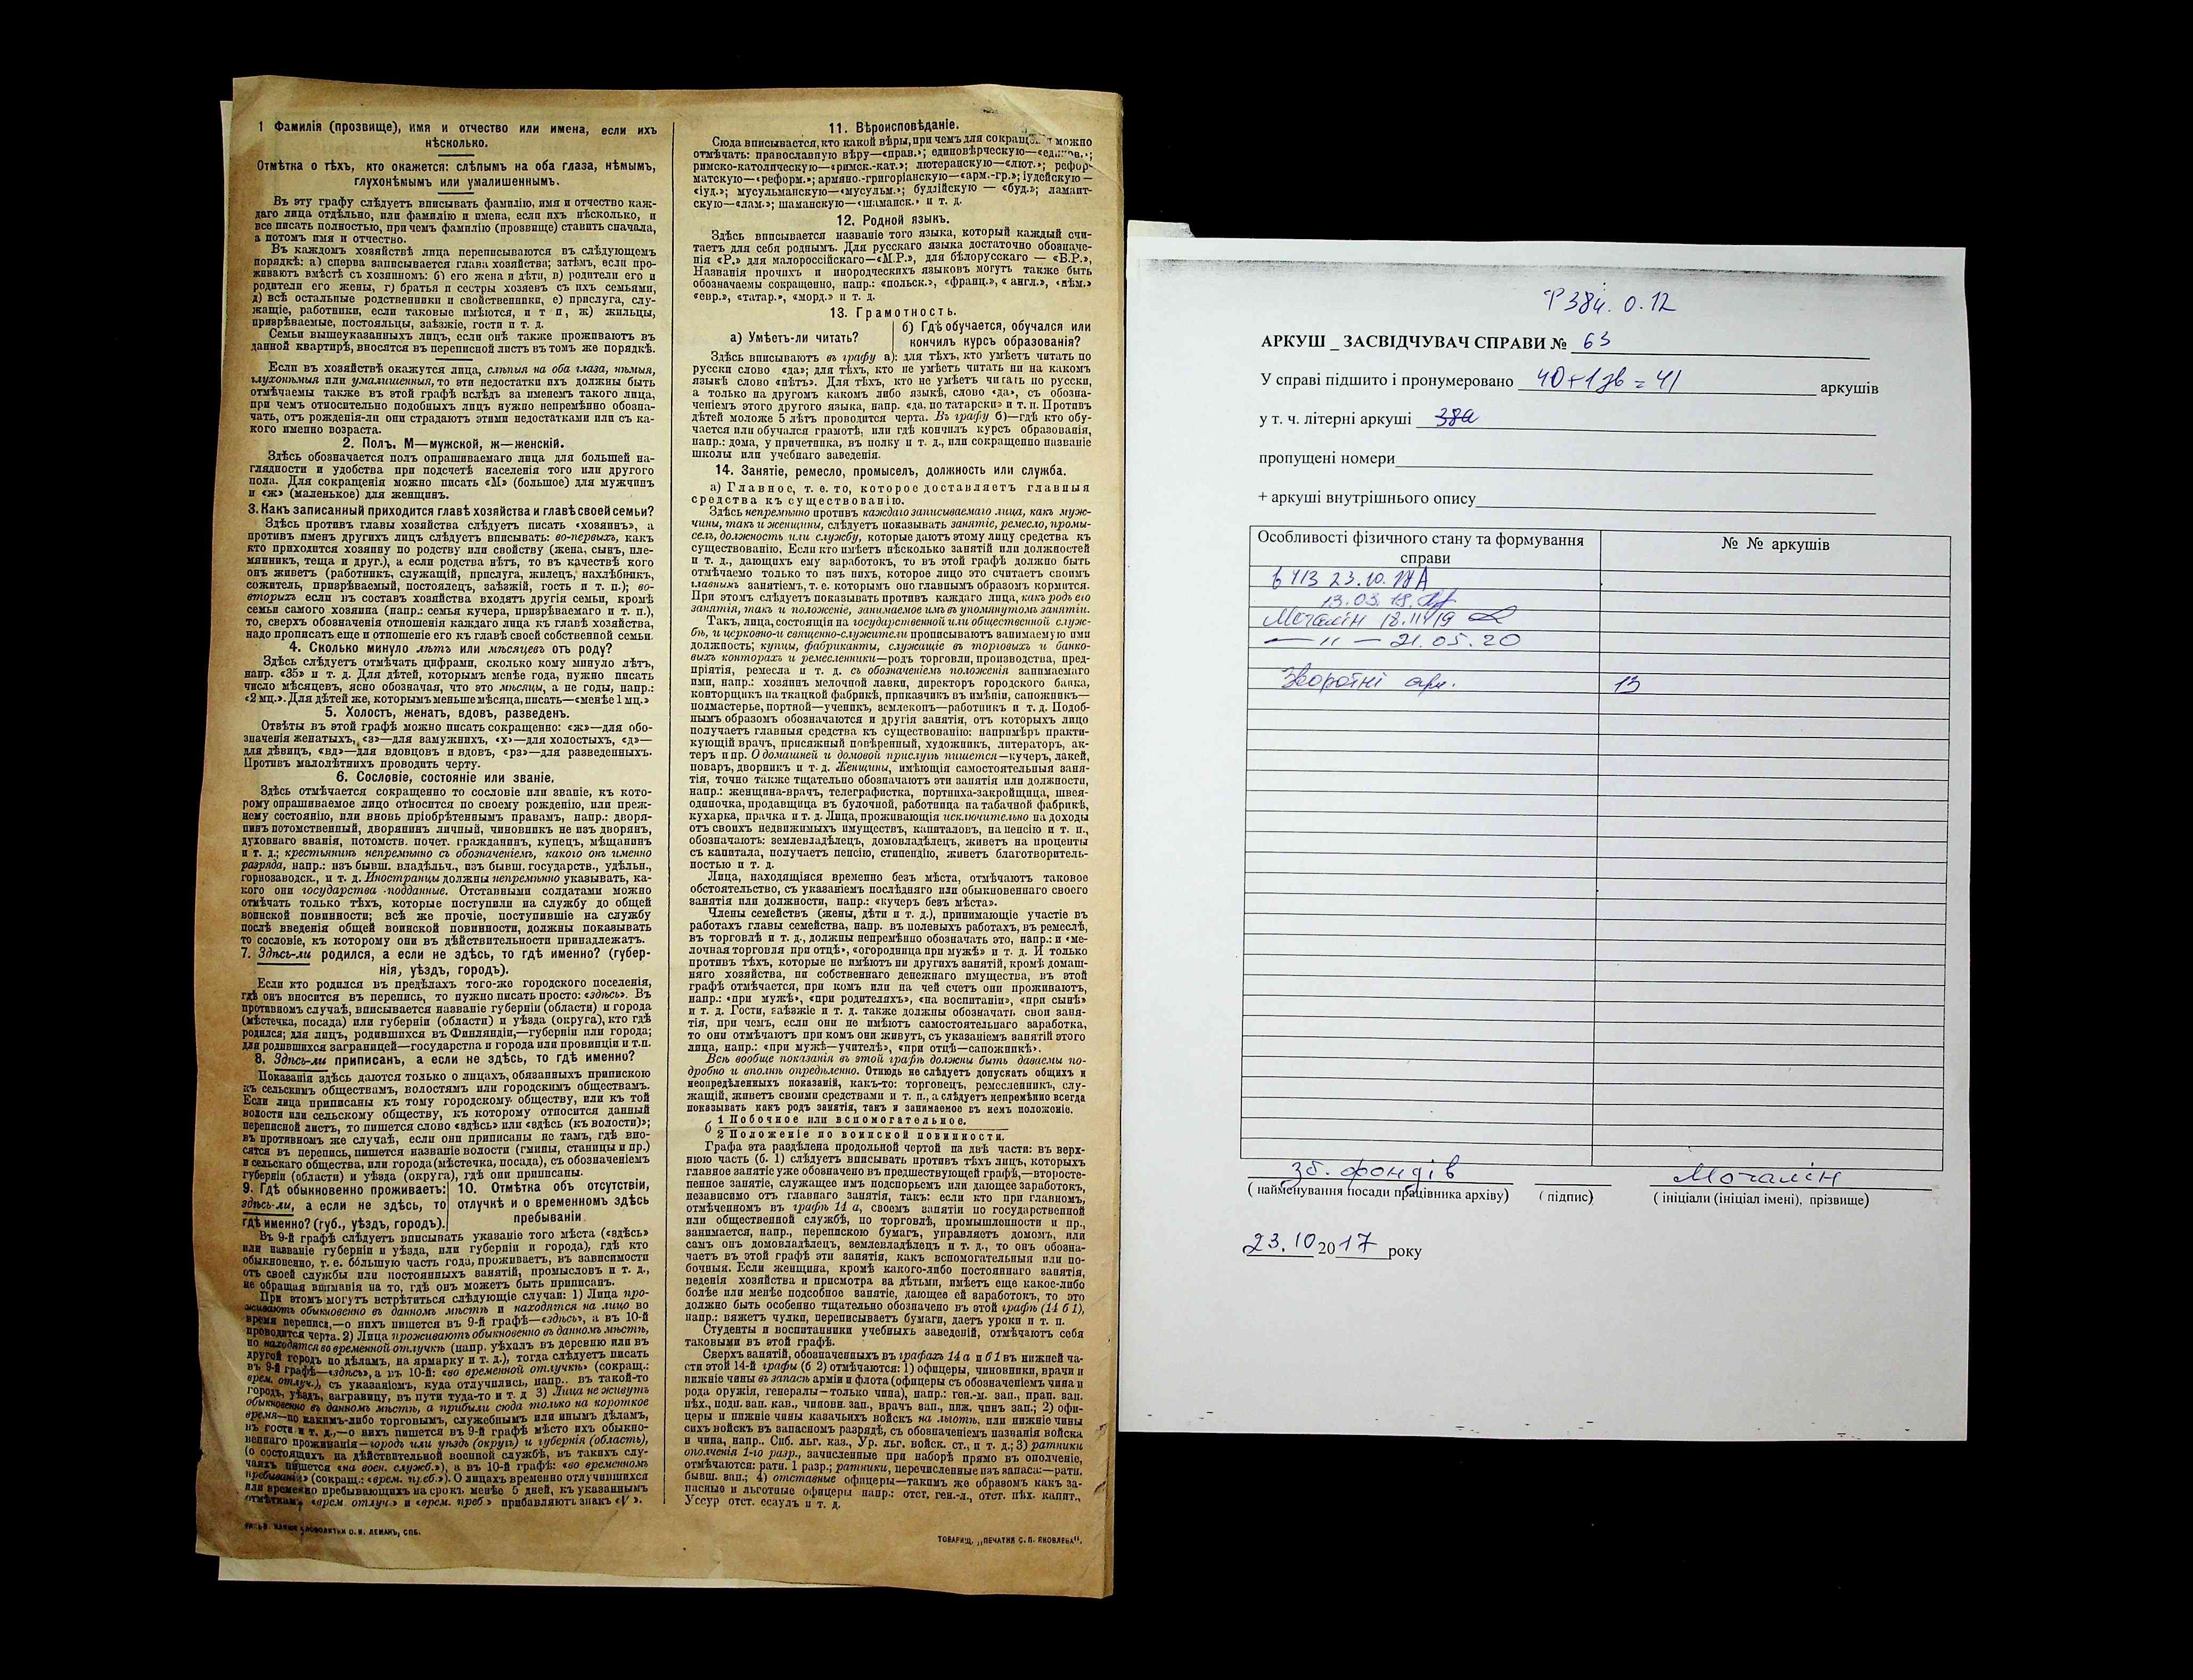 1 Фамилія (прозвище), имя и отчество или имена, если ихъ
нѣсколько.
Отмѣтка о тѣхъ, кто окажется: слѣпымъ на оба глаза, нѣмымъ,
глухонѣмымъ или умалишеннымъ.
Въ эту графу слѣдуетъ вписывать фамилію, имя и отчество каж-
даго лица отдѣльно, или фамилію и имена, если ихъ нѣсколько, и
все писать полностью, при чемъ фамилію (прозвище) ставить сначала,
а потомъ имя и отчество.
Въ каждомъ хозяйствѣ лица переписываются въ слѣдующемъ
порядкѣ: а) сперва записывается глава хозяйства; затѣмъ, если про-
живаютъ вмѣстѣ съ хозяиномъ: б) его жена и дѣти, в) родители его и
родители его жены, г) братья и сестры хозяевъ съ ихъ семьями,
д) всѣ остальные родственники и свойственники, е) прислуга, слу-
жащіе, работники, если таковые имѣются, и т п, ж) жильцы,
призрѣваемые, постояльцы, заѣзжіе, гости и т. д.
Семьи вышеуказанныхъ лицъ, если онѣ также проживаютъ въ
данной квартирѣ, вносятся въ переписной листъ въ томъ же порядкѣ.
Если въ хозяйствѣ окажутся лица, слѣпыя на оба глаза, нѣмыя,
глухонѣмыя или умалишенныя, то эти недостатки ихъ должны быть
отмѣчаемы также въ этой графѣ вслѣдъ за именемъ такого лица,
при чемъ относительно подобныхъ лицъ нужно непремѣнно обозна-
чать, отъ рожденія-ли они страдаютъ этими недостатками или съ ка-
кого именно возраста.
2. Полъ. М—мужской, ж—женскій.
Здѣсь обозначается полъ опрашиваемаго лица для большей на-
глядности и удобства при подсчетѣ населенія того или другого
пола. Для сокращенія можно писать «М» (большое) для мужчинъ
и «ж» (маленькое) для женщинъ.
3. Какъ записанный приходится главѣ хозяйства и главѣ своей семьи?
Здѣсь противъ главы хозяйства слѣдуетъ писать «хозяинъ», а
противъ именъ другихъ лицъ слѣдуетъ вписывать: во-первыхъ, какъ
кто приходится хозяину по родству или свойству (жена, сынъ, пле-
мянникъ, теща и друг.), а если родства нѣтъ, то въ качествѣ кого
онъ живетъ (работникъ, служащій, прислуга, жилецъ, нахлѣбникъ,
сожитель, призрѣваемый, постоялецъ, заѣзжій, гость и т. п.); во-
вторыхъ если въ составъ хозяйства входятъ другія семьи, кромѣ
семьи самого хозяина (напр.: семья кучера, призрѣваемаго и т. п.),
то, сверхъ обозначенія отношенія каждаго лица къ главѣ хозяйства,
надо прописать еще и отношеніе его къ главѣ своей собственной семьи.
4. Сколько минуло лѣтъ или мѣсяцевъ отъ роду?
Здѣсь слѣдуетъ отмѣчать цифрами, сколько кому минуло лѣтъ,
напр. «35» и т. д. Для дѣтей, которымъ менѣе года, нужно писать
число мѣсяцевъ, ясно обозначая, что это мѣсяцы, а не годы, напр.:
«2 мц.». Для дѣтей же, которымъ меньше мѣсяца, писать—«менѣе 1 мц.»
5. Холостъ, женатъ, вдовъ, разведенъ.
Отвѣты въ этой графѣ можно писать сокращенно: «ж»—для обо-
значенія женатыхъ, «з»—для замужнихъ, «х»—для холостыхъ, «д»—
для дѣвицъ, «вд»—для вдовцовъ и вдовъ, «рз»—для разведенныхъ.
Противъ малолѣтнихъ проводить черту.
6. Сословіе, состояніе или званіе.
Здѣсь отмѣчается сокращенно то сословіе или званіе, къ кото-
рому опрашиваемое лицо относится по своему рожденію, или преж-
нему состоянію, или вновь пріобрѣтеннымъ правамъ, напр.: дворя-
нинъ потомственный, дворянинъ личный, чиновникъ не изъ дворянъ,
духовнаго званія, потомств. почет. гражданинъ, купецъ, мѣщанинъ
и т. д.; крестьянинъ непремѣнно съ обозначеніемъ, какого онъ именно
разряда, напр.: изъ бывш. владѣльч., изъ бывш. государств., удѣльн.,
горнозаводск., и т. д. Иностранцы должны непремѣнно указывать, ка-
кого они государства подданные. Отставными солдатами можно
отмѣчать только тѣхъ, которые поступили на службу до общей
воинской повинности; всѣ же прочіе, поступившіе на службу
послѣ введенія общей воинской повинности, должны показывать
то сословіе, къ которому они въ дѣйствительности принадлежатъ.
7. Здѣсь-ли родился, а если не здѣсь, то гдѣ именно? (губер-
нія, уѣздъ, городъ).
Если кто родился въ предѣлахъ того-же городского поселенія,
гдѣ онъ вносится въ перепись, то нужно писать просто: «здѣсь». Въ
противномъ случаѣ, вписывается названіе губерніи (области) и города
(мѣстечка, посада) или губерніи (области) и уѣзда (округа), кто гдѣ
родился; для лицъ, родившихся въ Финляндіи,—губерніи или города;
для родившихся заграницей—государства и города или провинціи и т.п.
8. Здѣсь-ли приписанъ, а если не здѣсь, то гдѣ именно?
Показанія здѣсь даются только о лицахъ, обязанныхъ припискою
къ сельскимъ обществамъ, волостямъ или городскимъ обществамъ.
Если лица приписаны къ тому городскому обществу, или къ той
волости или сельскому обществу, къ которому относится данный
переписной листъ, то пишется слово «здѣсь» или «здѣсь (къ волости)»;
въ противномъ же случаѣ, если они приписаны не тамъ, гдѣ вно-
сятся въ перепись, пишется названіе волости (гмины, станицы и пр.)
и сельскаго общества, или города (мѣстечка, посада), съ обозначеніемъ
губерніи (области) и уѣзда (округа), гдѣ они приписаны.
9. Гдѣ обыкновенно проживаетъ:
здѣсь-ли, а если не здѣсь, то
гдѣ именно? (губ., уѣздъ, городъ).
10. Отмѣтка объ отсутствіи,
отлучкѣ и о временномъ здѣсь
пребываніи.
Въ 9-й графѣ слѣдуетъ вписывать указаніе того мѣста («здѣсь»
или названіе губерніи и уѣзда, или губерніи и города), гдѣ кто
обыкновенно, т. е. бо́льшую часть года, проживаетъ, въ зависимости
отъ своей службы или постоянныхъ занятій, промысловъ и т. д.,
не обращая вниманія на то, гдѣ онъ можетъ быть приписанъ.
При этомъ могутъ встрѣтиться слѣдующіе случаи: 1) Лица про-
живаютъ обыкновенно въ данномъ мѣстѣ и находятся на лицо во
время переписи,—о нихъ пишется въ 9-й графѣ—«здѣсь», а въ 10-й
проводится черта. 2) Лица проживаютъ обыкновенно въ данномъ мѣстѣ,
но находятся во временной отлучкѣ (напр. уѣхалъ въ деревню или въ
другой городъ по дѣламъ, на ярмарку и т. д.), тогда слѣдуетъ писать
въ 9-й графѣ—«здѣсь», а въ 10-й: «во временной отлучкѣ» (сокращ.:
врем. отлуч.), съ указаніемъ, куда отлучились, напр.. въ такой-то
городъ, уѣздъ, заграницу, въ пути туда-то и т. д 3) Лица не живутъ
обыкновенно въ данномъ мѣстѣ, а прибыли сюда только на короткое
время—по какимъ-либо торговымъ, служебнымъ или инымъ дѣламъ,
въ гости и т. д.,—о нихъ пишется въ 9-й графѣ мѣсто ихъ обыкно-
веннаго проживанія—городъ или уѣздъ (округъ) и губернія (область),
(о состоящихъ на дѣйствительной военной службѣ, въ такихъ слу-
чаяхъ пишется «на воен. служб.»), а въ 10-й графѣ: «во временномъ
пребываніи» (сокращ.: «врем. преб.»). О лицахъ временно отлучившихся
или временно пребывающихъ на срокъ менѣе 5 дней, къ указаннымъ
отмѣткамъ «врем. отлуч.» и «врем. преб.» прибавляютъ знакъ «V».
О. И. ЛЕМАНЪ, СПБ.
11. Вѣроисповѣданіе.
Сюда вписывается, кто какой вѣры, при чемъ для можно
отмѣчать: православную вѣру—«прав.»; единовѣрческую—
римско-католическую—«римск.-кат.»; лютеранскую—«лют.»; рефор-
матскую—«реформ.»; армяно.-григоріанскую—«арм.-гр.»; іудейскую—
«іуд.»; мусульманскую—«мусульм.»; буддійскую — «буд.»; ламаит-
скую—«лам.»; шаманскую—«шаманск.» и т. д.
12. Родной языкъ.
Здѣсь вписывается названіе того языка, который каждый счи-
таетъ для себя роднымъ. Для русскаго языка достаточно обозначе-
нія «Р.» для малороссійскаго—«М.Р.», для бѣлорусскаго — «Б.Р.»,
Названія прочихъ и инородческихъ языковъ могутъ также быть
обозначаемы сокращенно, напр.: «польск.», «франц.», « англ.», «нѣм.»
«евр.», «татар.», «морд.» и т. д.
13. Грамотность.
а) Умѣетъ-ли читать?
б) Гдѣ обучается, обучался или
кончилъ курсъ образованія?
Здѣсь вписываютъ въ графу а): для тѣхъ, кто умѣетъ читать по
русски слово «да»; для тѣхъ, кто не умѣетъ читать ни на какомъ
языкѣ слово «нѣтъ». Для тѣхъ, кто не умѣетъ читать по русски,
а только на другомъ какомъ либо языкѣ, слово «да», съ обозна-
ченіемъ этого другого языка, напр. «да, по татарски» и т. п. Противъ
дѣтей моложе 5 лѣтъ проводится черта. Въ графу б)—гдѣ кто обу-
чается или обучался грамотѣ, или гдѣ кончилъ курсъ образованія,
напр.: дома, у причетника, въ полку и т. д., или сокращенно названіе
школы или учебнаго заведенія.
14. Занятіе, ремесло, промыселъ, должность или служба.
а) Главное, т. е. то, которое доставляетъ главныя
средства къ существованію.
Здѣсь непремѣнно противъ каждаго записываемаго лица, какъ муж-
чины, такъ и женщины, слѣдуетъ показывать занятіе, ремесло, промы-
селъ, должность или службу, которые даютъ этому лицу средства къ
существованію. Если кто имѣетъ нѣсколько занятій или должностей
и т. д., дающихъ ему заработокъ, то въ этой графѣ должно быть
отмѣчаемо только то изъ нихъ, которое лицо это считаетъ своимъ
главнымъ занятіемъ, т. е. которымъ оно главнымъ образомъ кормится.
При этомъ слѣдуетъ показывать противъ каждаго лица, какъ родъ его
занятія, такъ и положеніе, занимаемое имъ въ упомянутомъ занятіи.
Такъ, лица, состоящія на государственной или общественной служ-
бѣ, и церковно-и священно-служители прописываютъ занимаемую ими
должность; купцы, фабриканты, служащіе въ торговыхъ и банко-
выхъ конторахъ и ремесленники—родъ торговли, производства, пред-
пріятія, ремесла и т. д. съ обозначеніемъ положенія занимаемаго
ими, напр.: хозяинъ мелочной лавки, директоръ городского банка,
конторщикъ на ткацкой фабрикѣ, приказчикъ въ имѣніи, сапожникъ—
подмастерье, портной—ученикъ, землекопъ—работникъ и т. д. Подоб-
нымъ образомъ обозначаются и другія занятія, отъ которыхъ лицо
получаетъ главныя средства къ существованію: напримѣръ практи-
кующій врачъ, присяжный повѣренный, художникъ, литераторъ, ак-
теръ и пр. О домашней и домовой прислугѣ пишется—кучеръ, лакей,
поваръ, дворникъ и т. д. Женщины, имѣющія самостоятельныя заня-
тія, точно также тщательно обозначаютъ эти занятія или должности,
напр.: женщина-врачъ, телеграфистка, портниха-закройщица, швея-
одиночка, продавщица въ булочной, работница на табачной фабрикѣ,
кухарка, прачка и т. д. Лица, проживающія исключительно на доходы
отъ своихъ недвижимыхъ имуществъ, капиталовъ, на пенсію и т. п.,
обозначаютъ: землевладѣлецъ, домовладѣлецъ, живетъ на проценты
съ капитала, получаетъ пенсію, стипендію, живетъ благотворитель-
ностью и т. д.
Лица, находящіяся временно безъ мѣста, отмѣчаютъ таковое
обстоятельство, съ указаніемъ послѣдняго или обыкновеннаго своего
занятія или должности, напр.: «кучеръ безъ мѣста».
Члены семействъ (жены, дѣти и т. д.), принимающіе участіе въ
работахъ главы семейства, напр. въ полевыхъ работахъ, въ ремеслѣ,
въ торговлѣ и т. д., должны непремѣнно обозначать это, напр.: и «ме-
лочная торговля при отцѣ», «огородница при мужѣ» и т. д. И только
противъ тѣхъ, которые не имѣютъ ни другихъ занятій, кромѣ домаш-
няго хозяйства, ни собственнаго денежнаго имущества, въ этой
графѣ отмѣчается, при комъ или на чей счетъ они проживаютъ,
напр.: «при мужѣ», «при родителяхъ», «на воспитаніи», «при сынѣ»
и т. д. Гости, заѣзжіе и т. д. также должны обозначать свои заня-
тія, при чемъ, если они не имѣютъ самостоятельнаго заработка,
то они отмѣчаютъ при комъ они живутъ, съ указаніемъ занятій этого
лица, напр.: «при мужѣ—учителѣ», «при отцѣ—сапожникѣ».
Всѣ вообще показанія въ этой графѣ должны быть даваемы по-
дробно и вполнѣ опредѣленно. Отнюдь не слѣдуетъ допускать общихъ и
неопредѣленныхъ показаній, какъ-то: торговецъ, ремесленникъ, слу-
жащій, живетъ своими средствами и т. п., а слѣдуетъ непремѣнно всегда
показывать какъ родъ занятія, такъ и занимаемое въ немъ положеніе.
б 1 Побочное или вспомогательное.
2 Положеніе по воинской повинности.
Графа эта раздѣлена продольной чертой на двѣ части: въ верх-
нюю часть (б. 1) слѣдуетъ вписывать противъ тѣхъ лицъ, которыхъ
главное занятіе уже обозначено въ предшествующей графѣ,—второсте-
пенное занятіе, служащее имъ подспорьемъ или дающее заработокъ,
независимо отъ главнаго занятія, такъ: если кто при главномъ,
отмѣченномъ въ графѣ 14 а, своемъ занятіи по государственной
или общественной службѣ, по торговлѣ, промышленности и пр.,
занимается, напр., перепискою бумагъ, управляетъ домомъ, или
самъ онъ домовладѣлецъ, землевладѣлецъ и т. д., то онъ обозна-
чаетъ въ этой графѣ эти занятія, какъ вспомогательныя или по-
бочныя. Если женщина, кромѣ какого-либо постояннаго занятія,
веденія хозяйства и присмотра за дѣтьми, имѣетъ еще какое-либо
болѣе или менѣе подсобное занятіе, дающее ей заработокъ, то это
должно быть особенно тщательно обозначено въ этой графѣ (14 б 1),
напр.: вяжетъ чулки, переписываетъ бумаги, даетъ уроки и т. п.
Студенты и воспитанники учебныхъ заведеній, отмѣчаютъ себя
таковыми въ этой графѣ.
Сверхъ занятій, обозначенныхъ въ графахъ 14 а и б 1 въ нижней ча-
сти этой 14-й графы (б 2) отмѣчаются: 1) офицеры, чиновники, врачи и
нижніе чины въ запасѣ арміи и флота (офицеры съ обозначеніемъ чина и
рода оружія, генералы—только чина), напр.: ген.-м. зап., прап. зап.
пѣх., подп. зап. кав., чиновн. зап., врачъ зап., ниж. чинъ зап.; 2) офи-
церы и нижніе чины казачьихъ войскъ на льготѣ, или нижніе чины
сихъ войскъ въ запасномъ разрядѣ, съ обозначеніемъ названія войска
и чина, напр.. Спб. льг. каз., Ур. льг. войск. ст., и т. д.; 3) ратники
ополченія 1-го разр., зачисленные при наборѣ прямо въ ополченіе,
отмѣчаются: ратн. 1 разр.; ратники, перечисленные изъ запаса:—ратн.
бывш. зап.; 4) отставные офицеры—такимъ же образомъ какъ за-
пасные и льготные офицеры напр.: отст. ген.-л., отст. пѣх. капит.,
Уссур отст. есаулъ и т. д.
ТОВАРИЩ. „ПЕЧАТНЯ С. П. ЯКОВЛЕВА".
Р 384. О. 12
АРКУШ _ ЗАСВІДЧУВАЧ СПРАВИ № 63
У справі підшито і пронумеровано 40+1зв = 41 аркушів
у т. ч. літерні аркуші 38а
пропущені номери
+ аркуші внутрішнього опису
Особливості фізичного стану та формування
справи
№ № аркушів
23.10.17
13.03.18.
Мочалін 18.11.19
— 11 — 21.05.20
Зворотні арк. 13
зб. фондів Мочалін
( найменування посади працівника архіву) ( підпис) ( ініціали (ініціал імені), прізвище)
23.10 2017 року